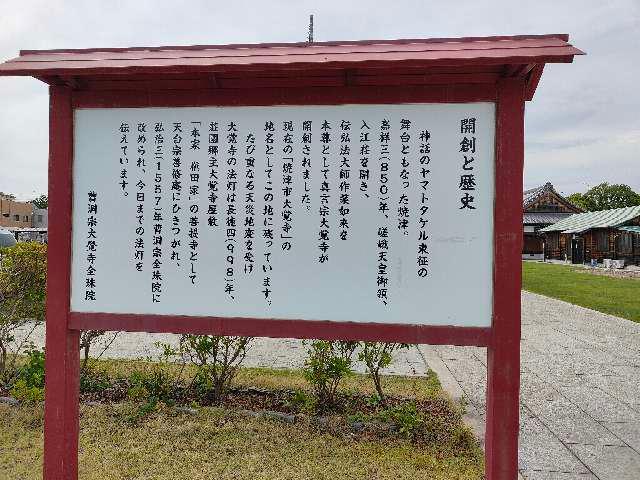 開創と歴史
神話のヤマトタケル東征の
舞台ともなった焼津。
嘉祥三(850)年、嵯峨天皇御領、
入江荘を開き、
伝弘法大師作薬如来を
本尊として真言宗大覚寺が
開創されました。
現在の「焼津市大覚寺」の
地名としてこの地に残っています。
たび重なる天災地変を受け
大覚寺の法灯は長徳四(998)年、
荘園郷主大覚寺屋敷
「本家 増田家」の菩提寺として
天台宗善修庵にひきつがれ、
弘治三(1557)年曹洞宗全珠院に
改められ、今日までの法灯を
伝えています。
曹洞宗大覚寺全珠院